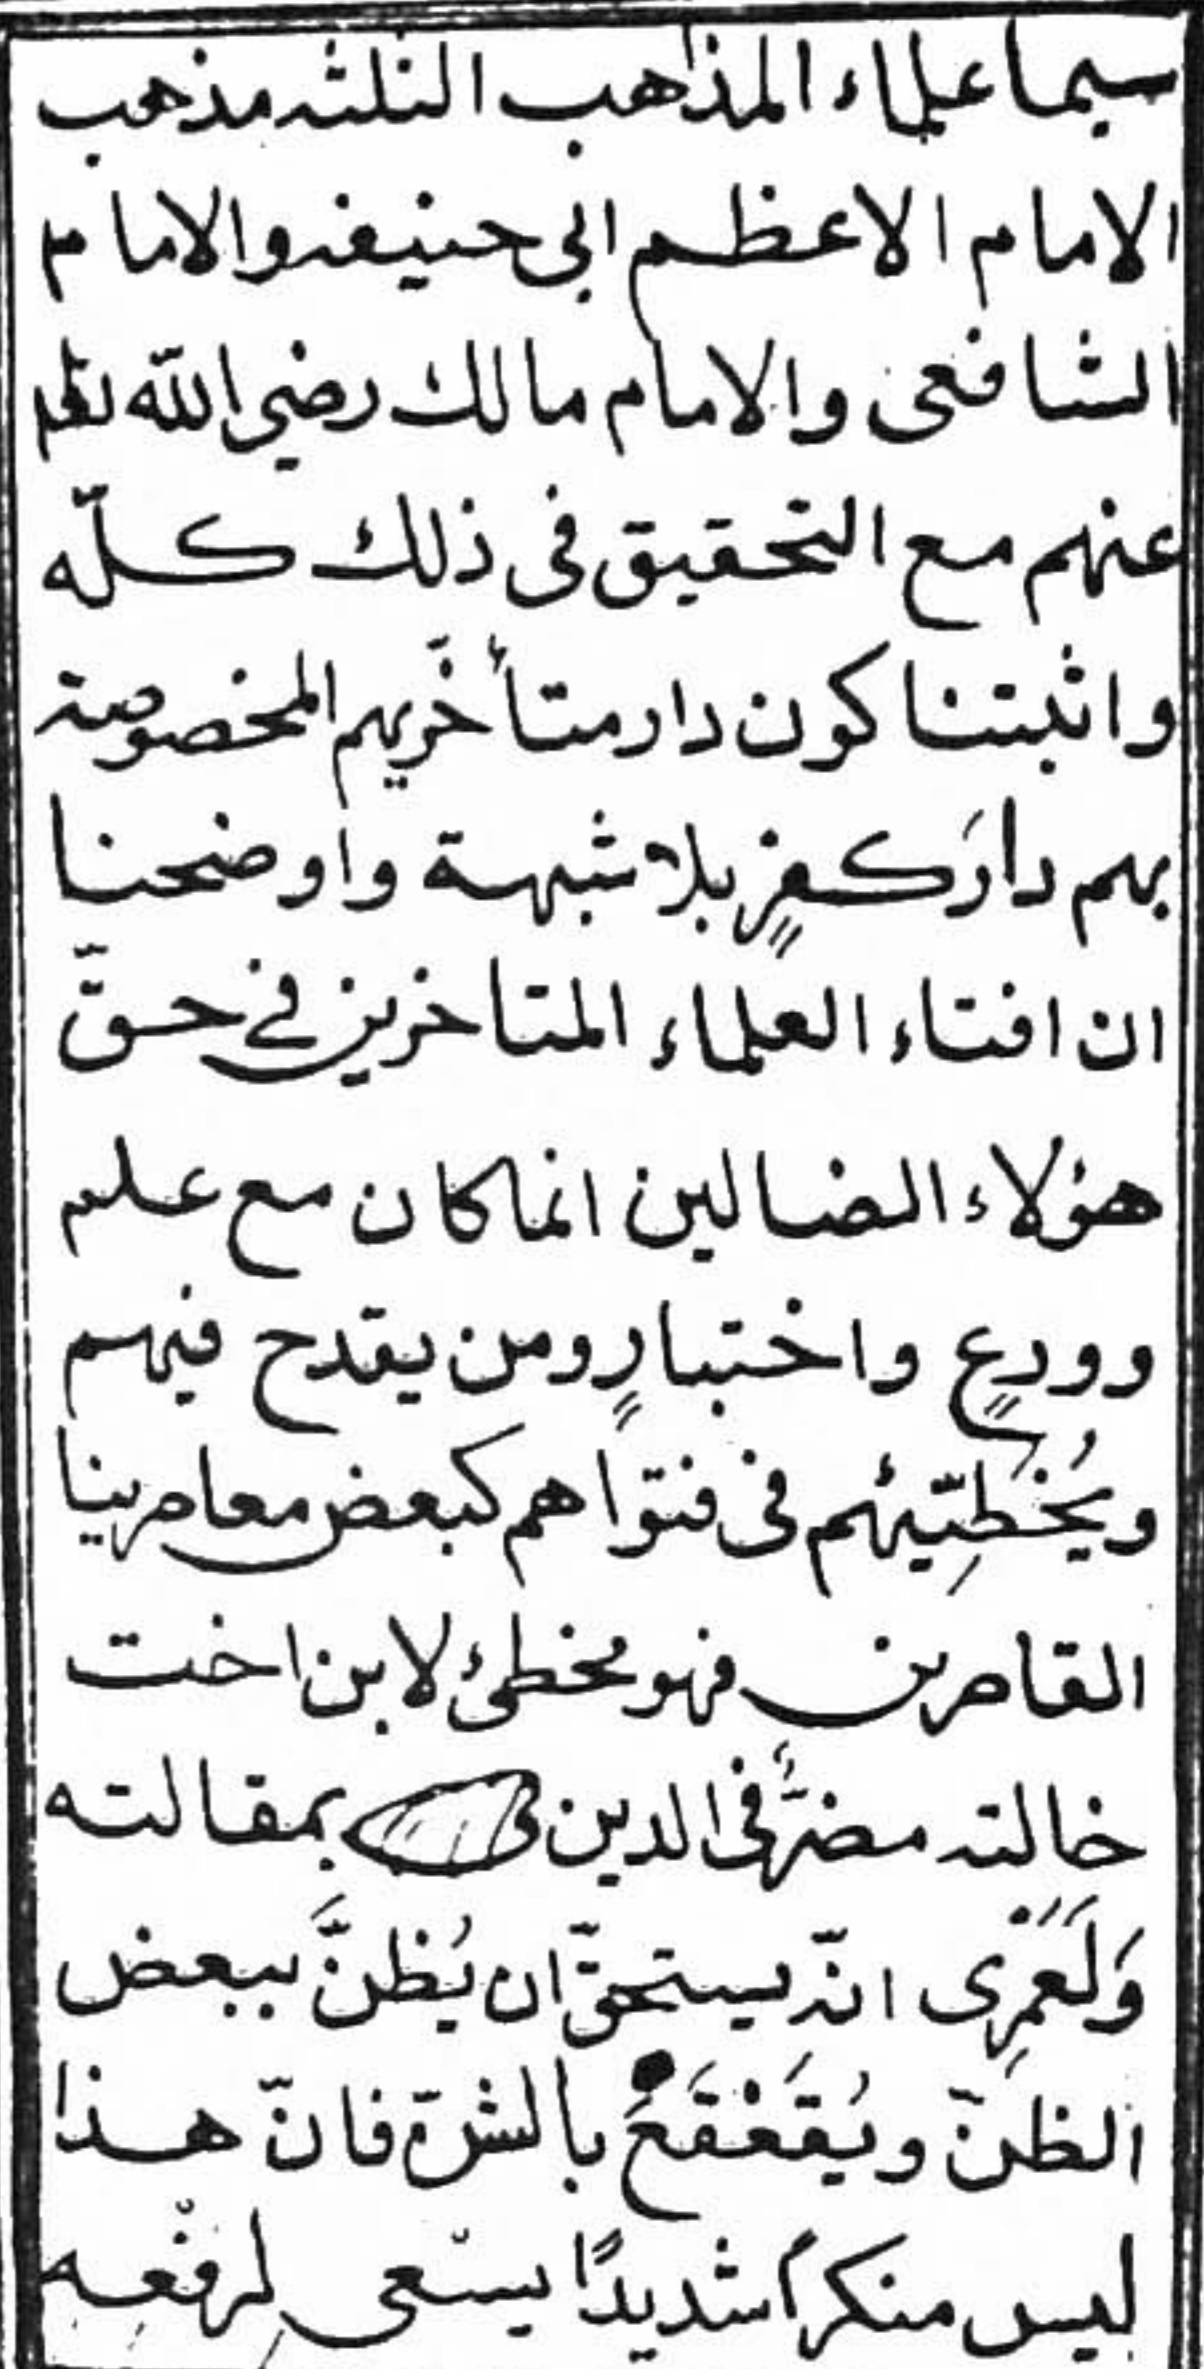 سيما علماء المذاهب الثلثه مذهب
الامام الاعظم ابى حنيفه والامام
الشافعى والامام مالك رضي الله
عنهم مع التحقيق فى ذلك كلّه
واثبتنا كون دار متأخّريهم المخصوصة
بهم دارَ كفرٍ بلا شبهة واوضحنا
ان افتاء العلماء المتاخرين في حقّ
هؤلاء الضالين انما كان مع علم
وورعٍ واختبارٍ ومن يقدح فيهم
ويُخَطِّيئهم فى فتواهم كبعض معاصرينا
القاصرين فهو مخطئ لابن اخت
خالته مضرٌّ فى الدين بمقالته
وَلَعَمْرِى انّه يستحقّ ان يُظنَّ ببعض
الظنّ ويُقَعْقَعَ بالشرّ فانّ هذا
ليس منكراً شديدًا يسْعى لرفْعه